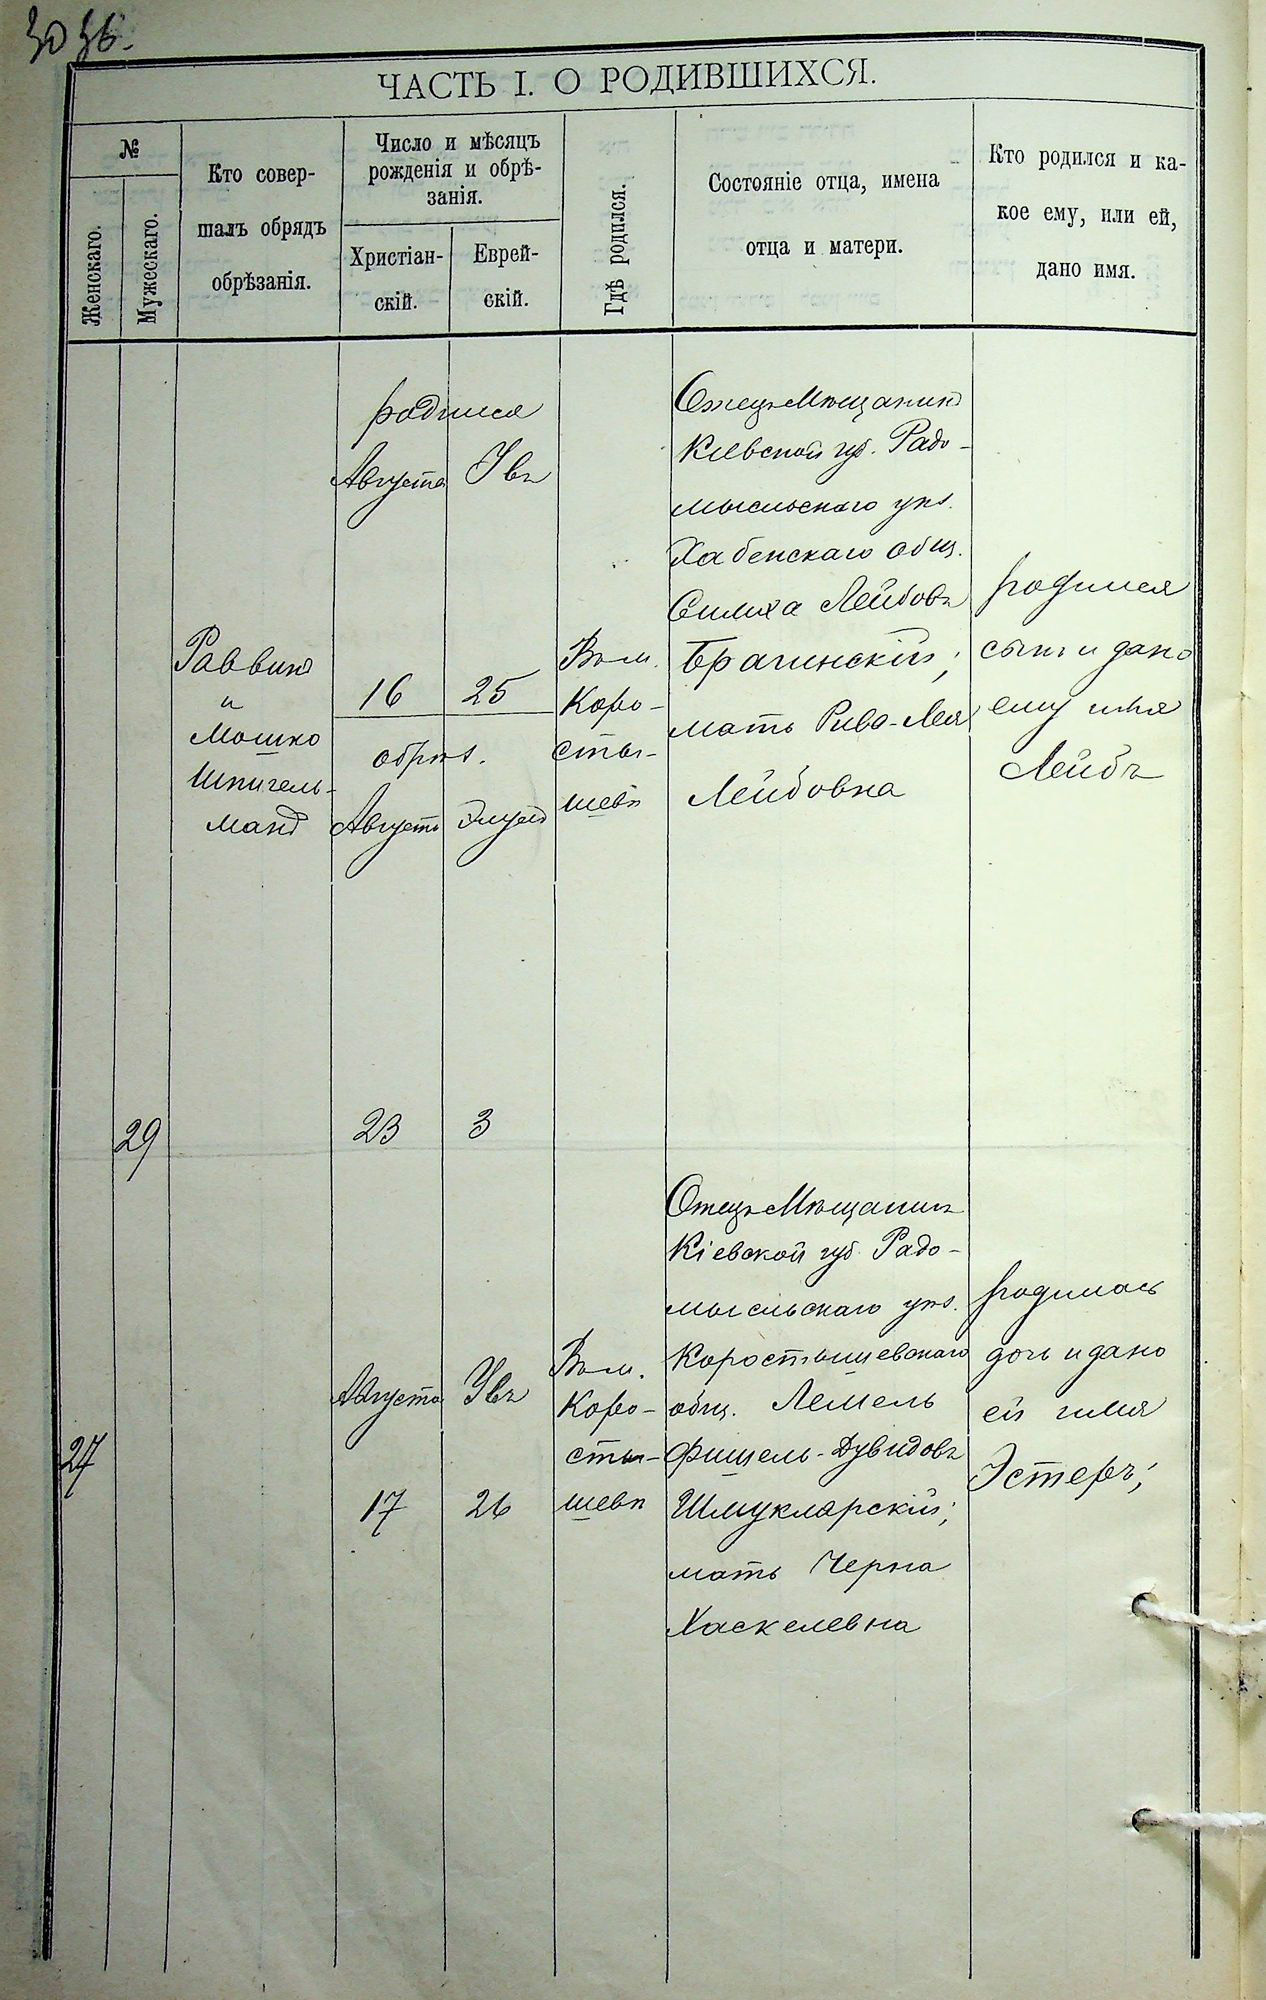 ЧАСТЬ I. О РОДИВШИХСЯ.
№
Женскаго.
Мужескаго.
Кто совер-
шалъ обрядъ
обрѣзанія.
Число и мѣсяцъ
рожденія и обрѣ-
занія.
Христіан-
скій.
Еврей-
скій.
Гдѣ родился.
Состояніе отца, имена
отца и матери.
Кто родился и ка-
кое ему, или ей,
дано имя.
29
Раввинъ
и
Мошко
Шпигель-
манъ
родился
Августа
16
обрѣз.
Августа
23
Увъ
25
Элулъ
3
Въ м.
Коро-
сты-
шевѣ
Отецъ Мѣщанинъ
Кіевской губ. Радо-
мысльскаго уѣз.
Хабенскаго общ.
Симха Лейбовъ
Брагинскій;
мать Рива-Лея
Лейбовна
родился
сынъ и дано
ему имя
Лейбъ
27
Августа
17
Увъ
26
Въ м.
Коро-
сты-
шевѣ
Отецъ Мѣщанинъ
Кіевской губ. Радо-
мысльскаго уѣз.
Коростышевскаго
общ. Лемель
Фишель-Дувидовъ
Шмукларскій;
мать Черна
Хаскелевна
родилась
дочь и дано
ей имя
Эстеръ;